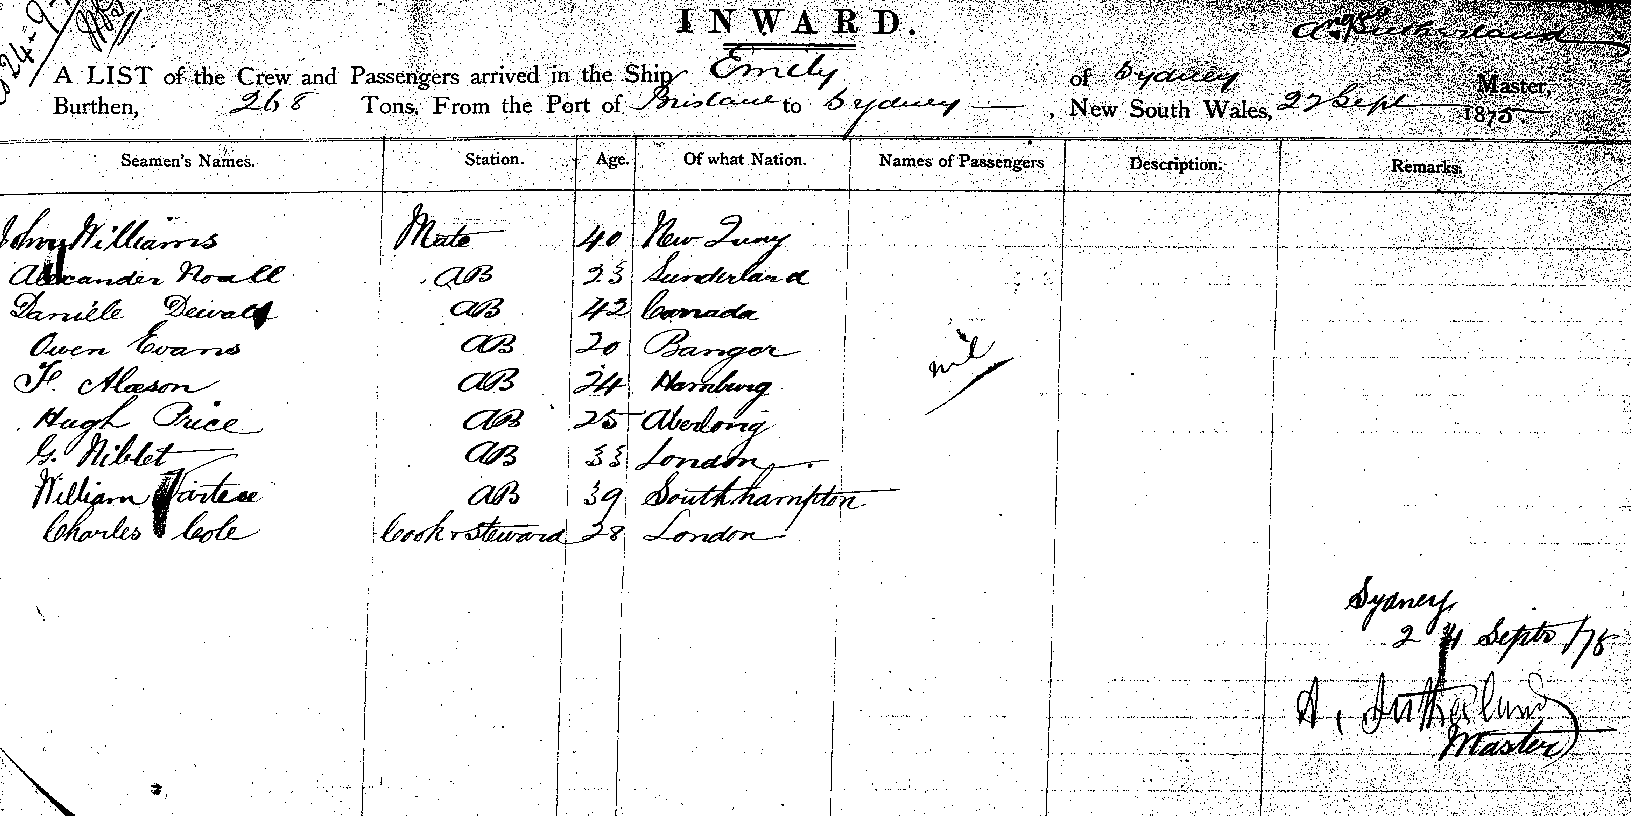 INWARD.
Angus
A. Sutherland
A LIST of the Crew and Passengers arrived in the Ship Emily of Sydney Master,
Burthen, 268 Tons, From the Port of Brisbane to Sydney, New South Wales, 22 Sept 1875.
Seamen's Names. Station. Age. Of what Nation. Names of Passengers Description. Remarks.
John Williams Mate 40 New Quay
Alexander Noall AB 23 Sunderland
Danille AB 42 Canada
Owen Evans AB 20 Bangor
nil
F. AB 24 Hamburg
Hugh Price AB 25
G. Niblet AB 33 London
William AB 39 Southhampton
Charles Cole Cook & Steward 28 London
Sydney
24 Septr /75
A. Sutherland
Master